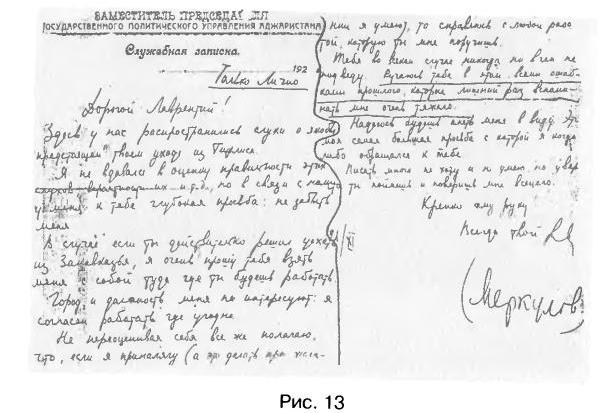 ЗАМЕСТИТЕЛЬ ПРЕДСЕДАТ ЛЯ
ГОСУДАРСТВЕННОГО ПОЛИТИЧЕСКОГО УПРАВЛЕНИЯ АДЖАРИСТАНА
Служебная записка.
192
Только Лично
Дорогой Лаврентий!
Здесь у нас распространились слухи о якобы
предстоящем твоем уходе из Тифлиса.
Я не вдаваясь в оценку правильности этих
слухов вероятностных и т.д., но в связи с ними
у меня к тебе глубокая просьба: не забыть
меня
В случае если ты действительно решил уехать
из Закавказья, я очень прошу тебя взять
меня с собой туда где ты будешь работать.
Город и должность меня не интересуют: я
согласен работать где угодно.
Не переоценивая себя все же полагаю,
что, если я приналягу (а это делать при жела-
нии я умею), то справлюсь с любой рабо
той, которую ты мне поручишь.
Тебя во всяком случае никогда ни в чем не
подведу. Ручаюсь тебе в этом всеми ошиб
ками прошлого, которые лишний раз вспоми
нать мне очень тяжело.
Надеюсь будешь иметь меня в виду. Эт
моя самая большая просьба с которой я когда
либо обращался к тебе.
Писать много не хочу и не умею, но увер
ты поймешь и поверишь мне всецело.
Крепко жму руку
Всегда твой
(Меркулов)
Рис. 13